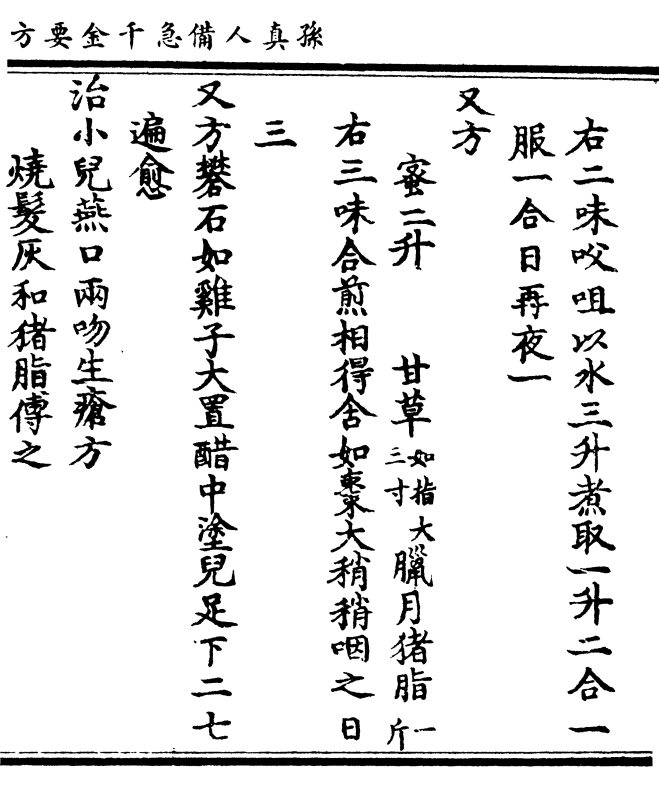 孫真人備急千金要方
右二味㕮咀以水三升煮取一升二合一
服一合日再夜一
又方
蜜二升 甘草如指大三寸 臘月猪脂一斤
右三味合煎相得含如棗大稍稍咽之日
三
又方礬石如雞子大置醋中塗兒足下二七
遍愈
治小兒燕口兩吻生瘡方
燒髮灰和猪脂傅之